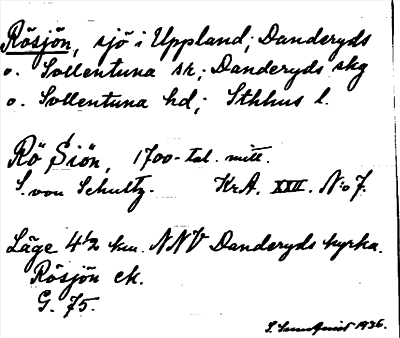 Rösjön, sjö i Uppland; Danderyds
o. Sollentuna sn; Danderyds skg
o. Sollentuna hd; Sthlms l.
Rö Siön, 1700-tal. mitt.
S. von Schultz. KrA. XXII. No 7.
Läge 4 1/2 km. NNV Danderyds kyrka.
Rösjön ek.
G. 75.
1936.